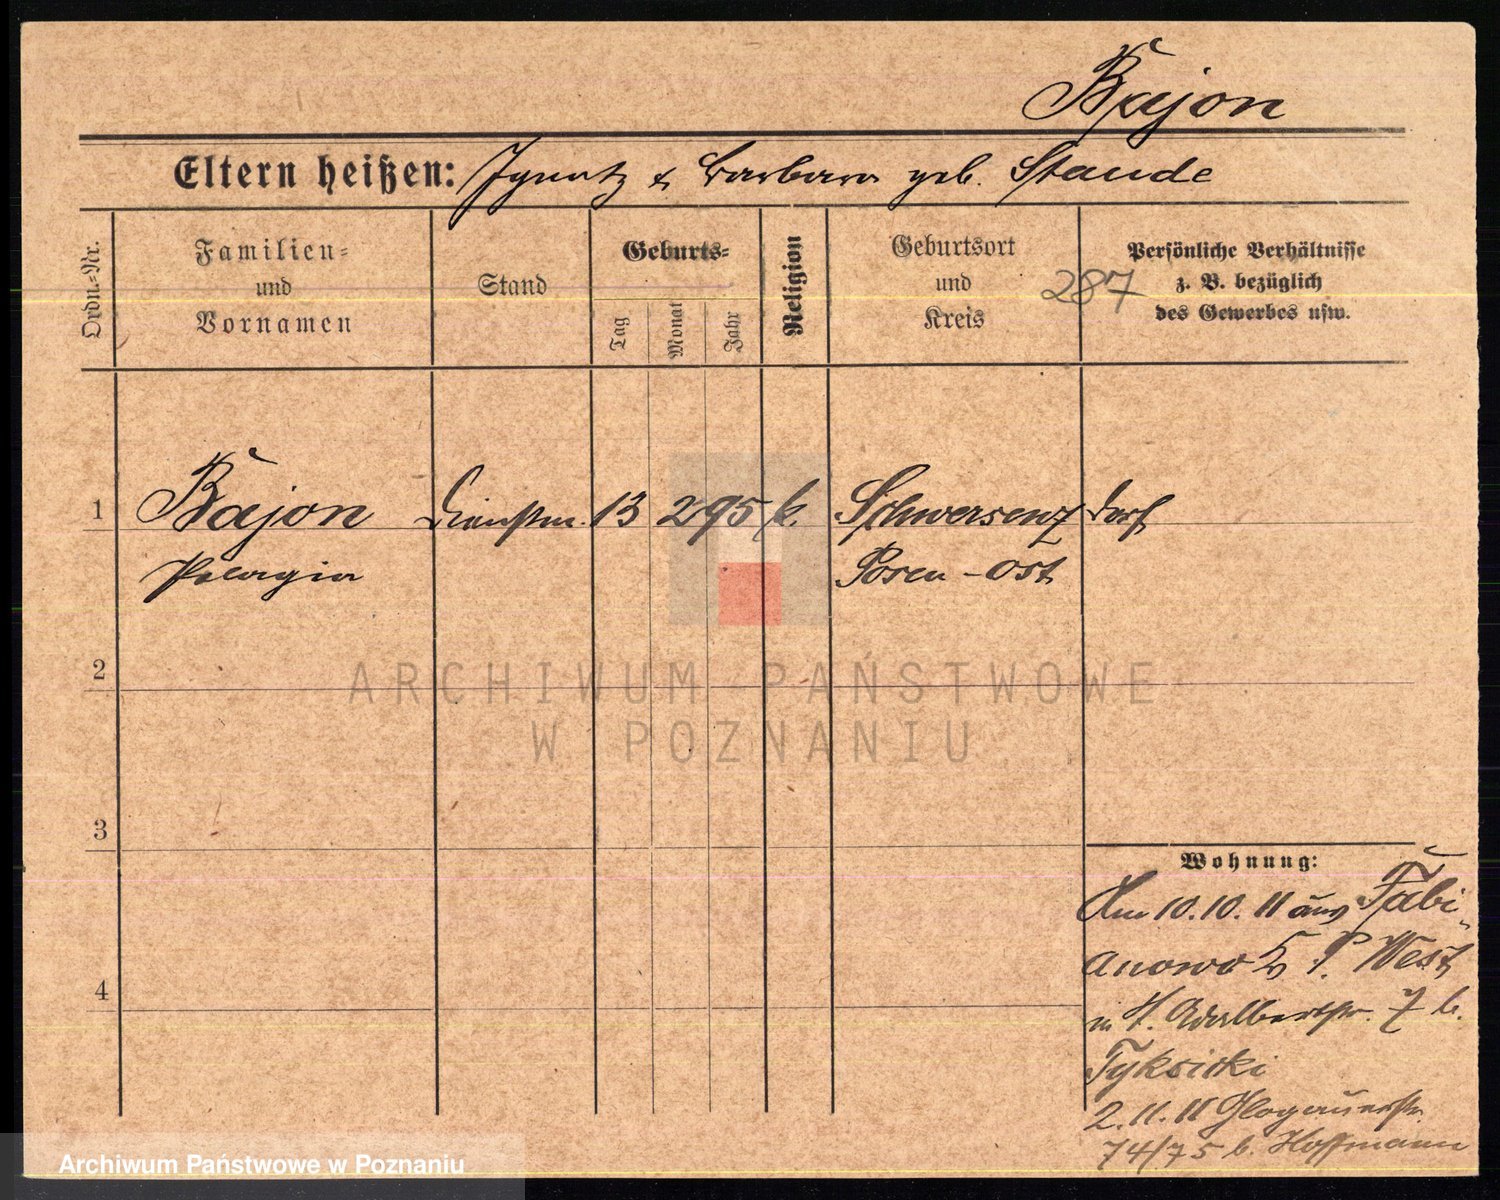 Bajon
Eltern heißen: Ignatz & Barbara geb. Staude
Ordn.-Nr.
Familien- und Vornamen
Stand
Geburts-
Tag
Monat
Jahr
Religion
Geburtsort und Kreis
Persönliche Verhältnisse
z. B. bezüglich
des Gewerbes usw.
287
1 Bajon Dienstm. 13 2 95 k. Schwersenz Dorf
Pelagia Posen-Ost
2
3
4
ARCHIWUM PAŃSTWOWE
W POZNANIU
Wohnung:
Am 10.10.11 aus Fabi-
anowo P. West
Adalbertstr. 7 b.
2.11.11 Glogauerstr.
74/75 b. Hoffmann
Archiwum Państwowe w Poznaniu